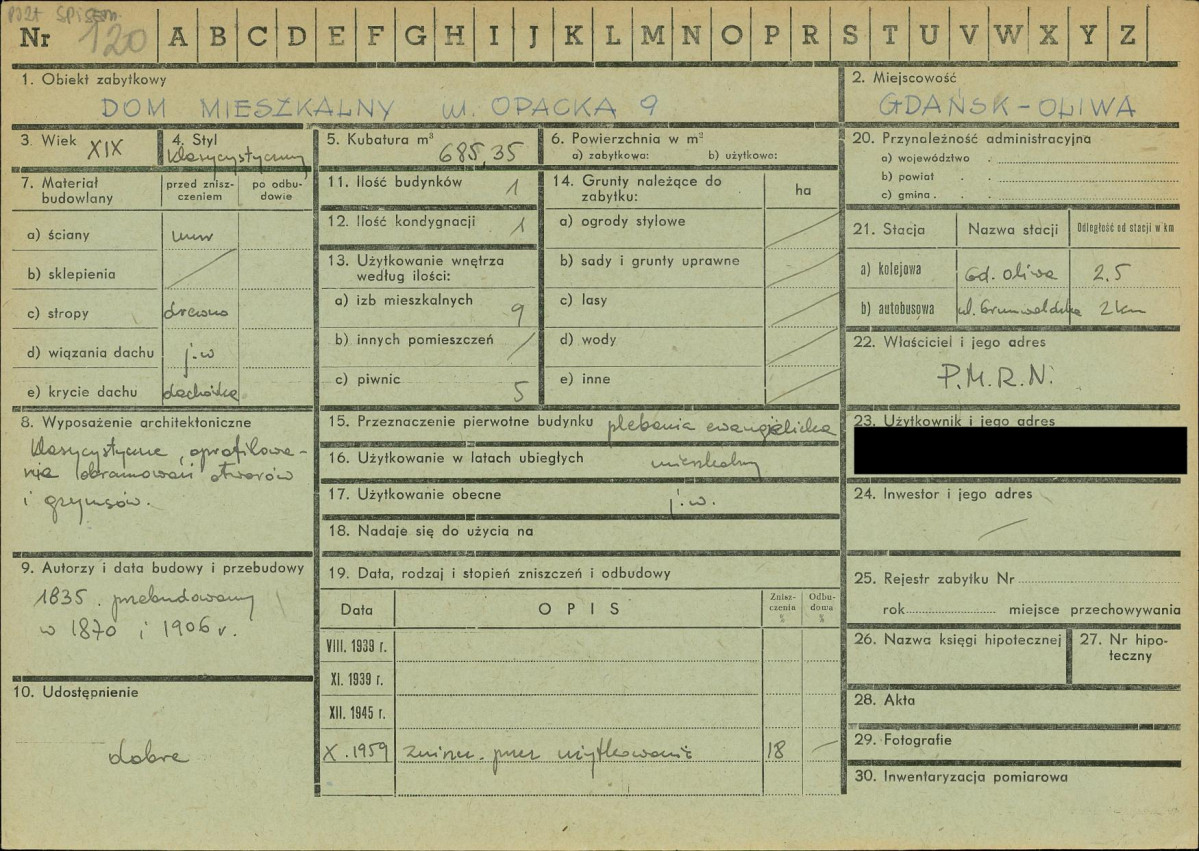 Nr 120 A B C D E F G H I J K L M N O P R S T U V W X Y Z
1. Obiekt zabytkowy
DOM MIESZKALNY ul. OPACKA 9
2. Miejscowość
GDAŃSK-OLIWA
3. Wiek XIX
4. Styl klasycystyczny
5. Kubatura m³ 685,35
6. Powierzchnia w m²
a) zabytkowa: b) użytkowo:
7. Materiał budowlany
przed zniszczeniem
po odbudowie
a) ściany mur
b) sklepienia
c) stropy drewno
d) wiązania dachu j.w
e) krycie dachu dachówka
8. Wyposażenie architektoniczne
klasycystyczne, oprofilowa-
nia obramowań otworów
i gzymsów.
9. Autorzy i data budowy i przebudowy
1835. przebudowany
w 1870 i 1906 r.
10. Udostępnienie
dobre
11. Ilość budynków 1
12. Ilość kondygnacji 1
13. Użytkowanie wnętrza
według ilości:
a) izb mieszkalnych 9
b) innych pomieszczeń
c) piwnic 5
14. Grunty należące do
zabytku:
ha
a) ogrody stylowe
b) sady i grunty uprawne
c) lasy
d) wody
e) inne
15. Przeznaczenie pierwotne budynku plebania ewangielicka
16. Użytkowanie w latach ubiegłych mieszkalny
17. Użytkowanie obecne j.w.
18. Nadaje się do użycia na
19. Data, rodzaj i stopień zniszczeń i odbudowy
Data OPIS Zniszczenia % Odbudowa %
VIII. 1939 r.
XI. 1939 r.
XII. 1945 r.
X. 1959 zniszcz. przez użytkowanie 18
20. Przynoleżność administracyjna
a) województwo
b) powiat
c) gmina
21. Stacja Nazwa stacji Odległość od stacji w km
a) kolejowa Gd. Oliwa 2,5
b) autobusowa ul. Grunwaldzka 2 km
22. Właściciel i jego adres
P.M.R.N.
23. Użytkownik i jego adres
24. Inwestor i jego adres
25. Rejestr zabytku Nr
rok miejsce przechowywania
26. Nazwa księgi hipotecznej
27. Nr hipo-
teczny
28. Akta
29. Fotografie
30. Inwentaryzacja pomiarowa